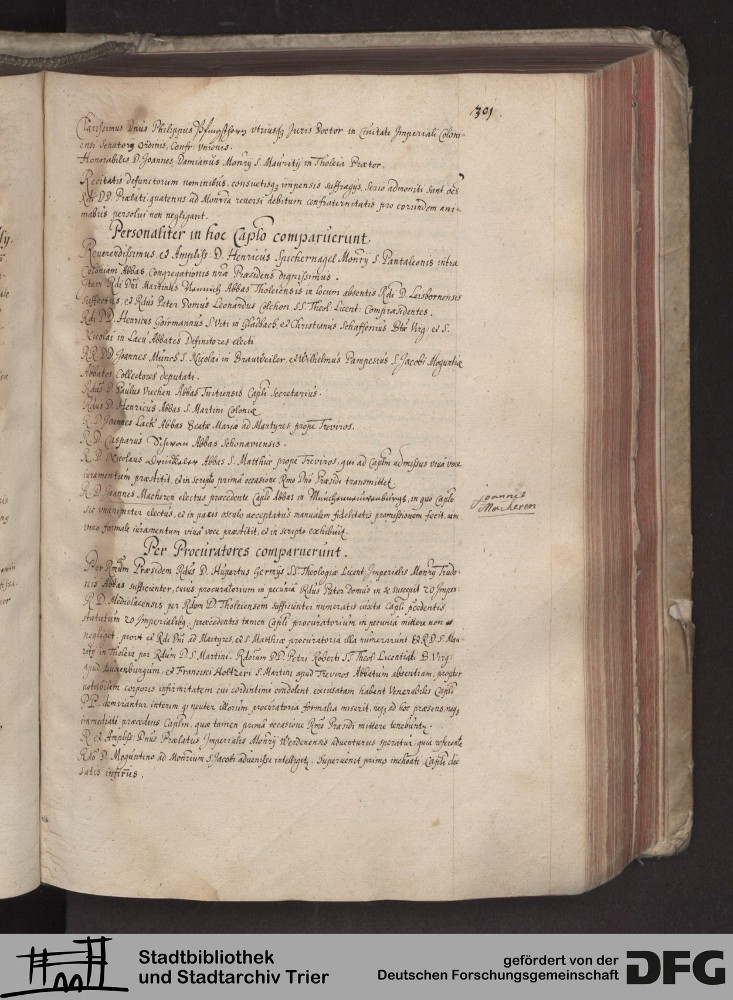 301.
Clarissimus Dnus Philippus utriusq Juris Doctor in Civitati Imperiali Coloni-
ensi Senatorij Ordinis, Confr. Unionis.
Honorabilis D. Joannes Damianus Monrÿ S. Mauritÿ in Tholeia Prætor.
Recitatis defunctorum nominibus, consuetisq impensis suffragÿs, serio admoniti sunt oēs
Rdi DD. Prælati, quatenus ad Monria reversi debitum confraternitatis pro eorundem ani-
mabus persolui non negligant.
Personaliter in hoc Caplo comparuerunt.
Reverendissimus et Ampliss. D. Henricus Spichernagel Monrÿ S. Pantaleonis intra
Coloniam Abbas, Congregationis nrā Præsidens dignissimus.
Item Rdi Dni Martinus Abbas Tholeiensis in locum absentis Rdi D. Leisbornensis
suffectus, et Rdus Pater Domus Leonardus Colchon SS. Theol. Licent. Compræsidentes.
Rdi DD. Henricus Goirmannus S. Viti in Gladbach, et Christianus Schaffenius Btæ Virg. et S.
Nicolai in Lacu Abbates Definitores electi
RR. DD. Joannes Münch S. Nicolai in Brauweiler, et Wilhelmus Pampesius S. Jacobi Moguntiæ
Abbates Collectores deputati.
Rdus D. Paulus Vrechen Abbas Tuitiensis Capli Secretarius.
Rdus D. Henricus Abbas S. Martini Coloniæ
R. D. Joannes Lack Abbas Beatæ Mariæ ad Martyres prope Treviros.
R. D. Casparus Abbas Schonaviensis.
R. D. Nicolaus Abbas S. Matthiæ prope Treviros, qui ad Caplm admissus viva voce
iuramentum præstitit, et in scripto prima occasione Rmo Dno Præsidi transmittet
R. D. Joannes Macheren electus præcedente Caplo Abbas in in quo Caplo
sic unanimiter electus, et in pacis osculo acceptatus manualem fidelitatis promissionem fecit, nunc
vero formale iuramentum viva voce præstitit, et in scripto exhibuit.
Joannis
Macheren
Per Procuratores comparuerunt.
Per Rmum Præsidem Rdus D. Hupertus Germÿs SS. Theologiæ Licent. Imperialis Monrÿ Trudo-
nis Abbas sufficienter, cuius procuratorium in pecunia Rdus Pater Domus in suscepit 20 Imper.
R. D. Mediolacensis per Rdum D. Tholeiensem sufficienter numeratis iuxta Capli precedentis
statutum 20 Imperialibq, præcedentis tamen Capli procuratorium in pecunia mittere non
negliget, prout et Rdi Dni ad Martyres, et S. Matthiæ procuratoria illa numerarunt. Et R. D. S. Mau-
ritÿ in Tholeia per Rdum D. S. Martini. Rdorum DD. Petri Roberti SS. Theol. Licentiati B. Virg.
apud Luxenburgum, et Francisci Holtzeri S. Martini apud Treviros Abbatum absentiam, propter
notabilem corporis infirmitatem cui cordintime condolent, excusatam habent Venerabiles Capli
PP. demirantur interim q neuter illorum procuratoria formalia miserit, neq ad hoc præsens, neq
immediate præcedens Caplm, quæ tamen prima occasione Rmo Præsidi mittere tenebuntr.
R. et Ampliss. Dnus Prælatus Imperialis Monrÿ Werdenensis adventurus speratur, quia referente
Rdo D. Moguntino ad Monrium S. Jacobi advenisse intelligitr. Supervenit primo inchoati Capli die
satis infirmus.
Stadtbibliothek
und Stadtarchiv Trier
gefördert von der
Deutschen Forschungsgemeinschaft
DFG